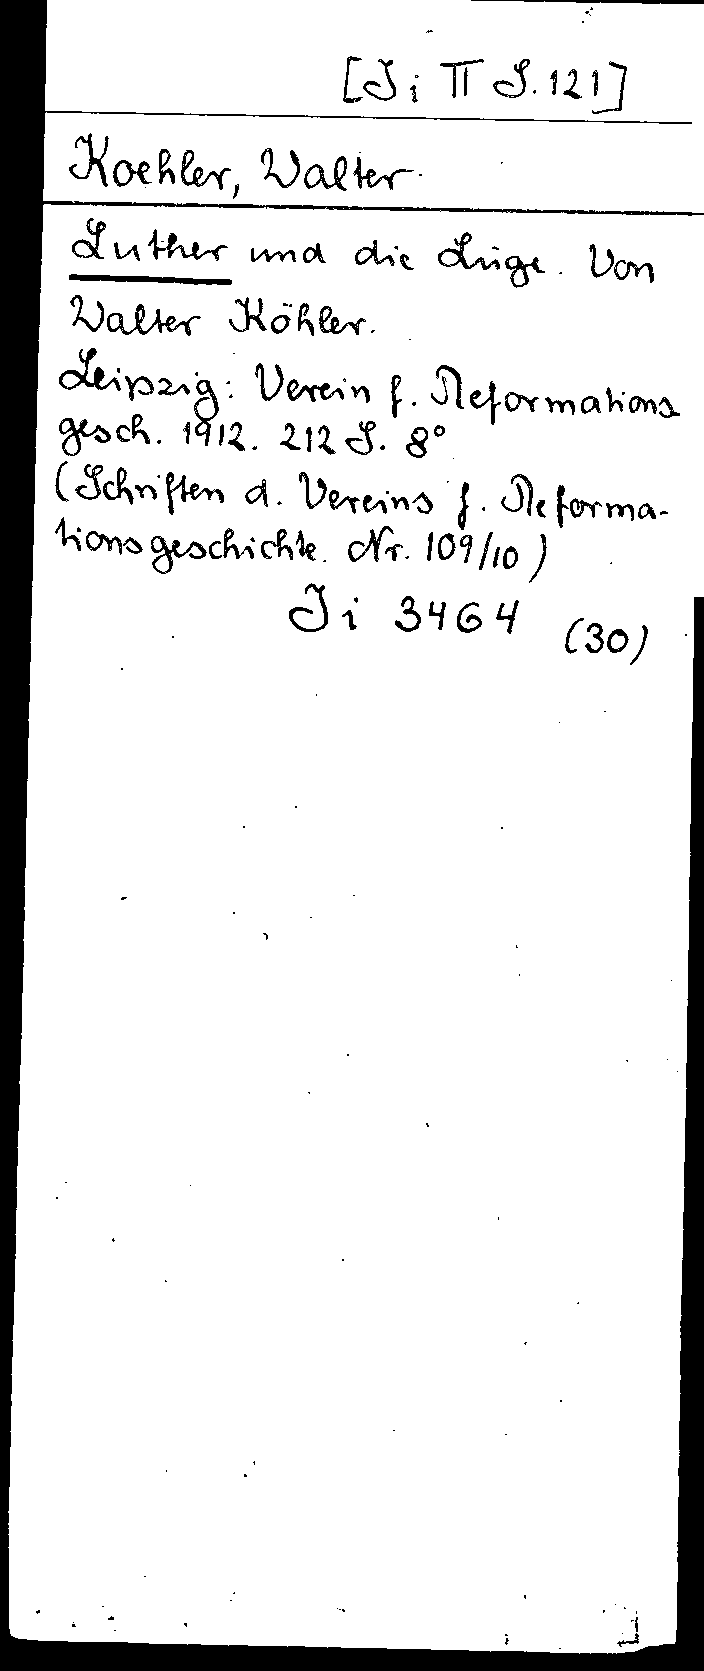 [Ji II S. 121]
Koehler, Walter.
Luther und die Lüge. Von
Walter Köhler.
Leipzig: Verein f. Reformations
gesch. 1912. 212 S. 8°
(Schriften d. Vereins f. Reforma-
tionsgeschichte. Nr. 109/10)
Ji 3464 (30)